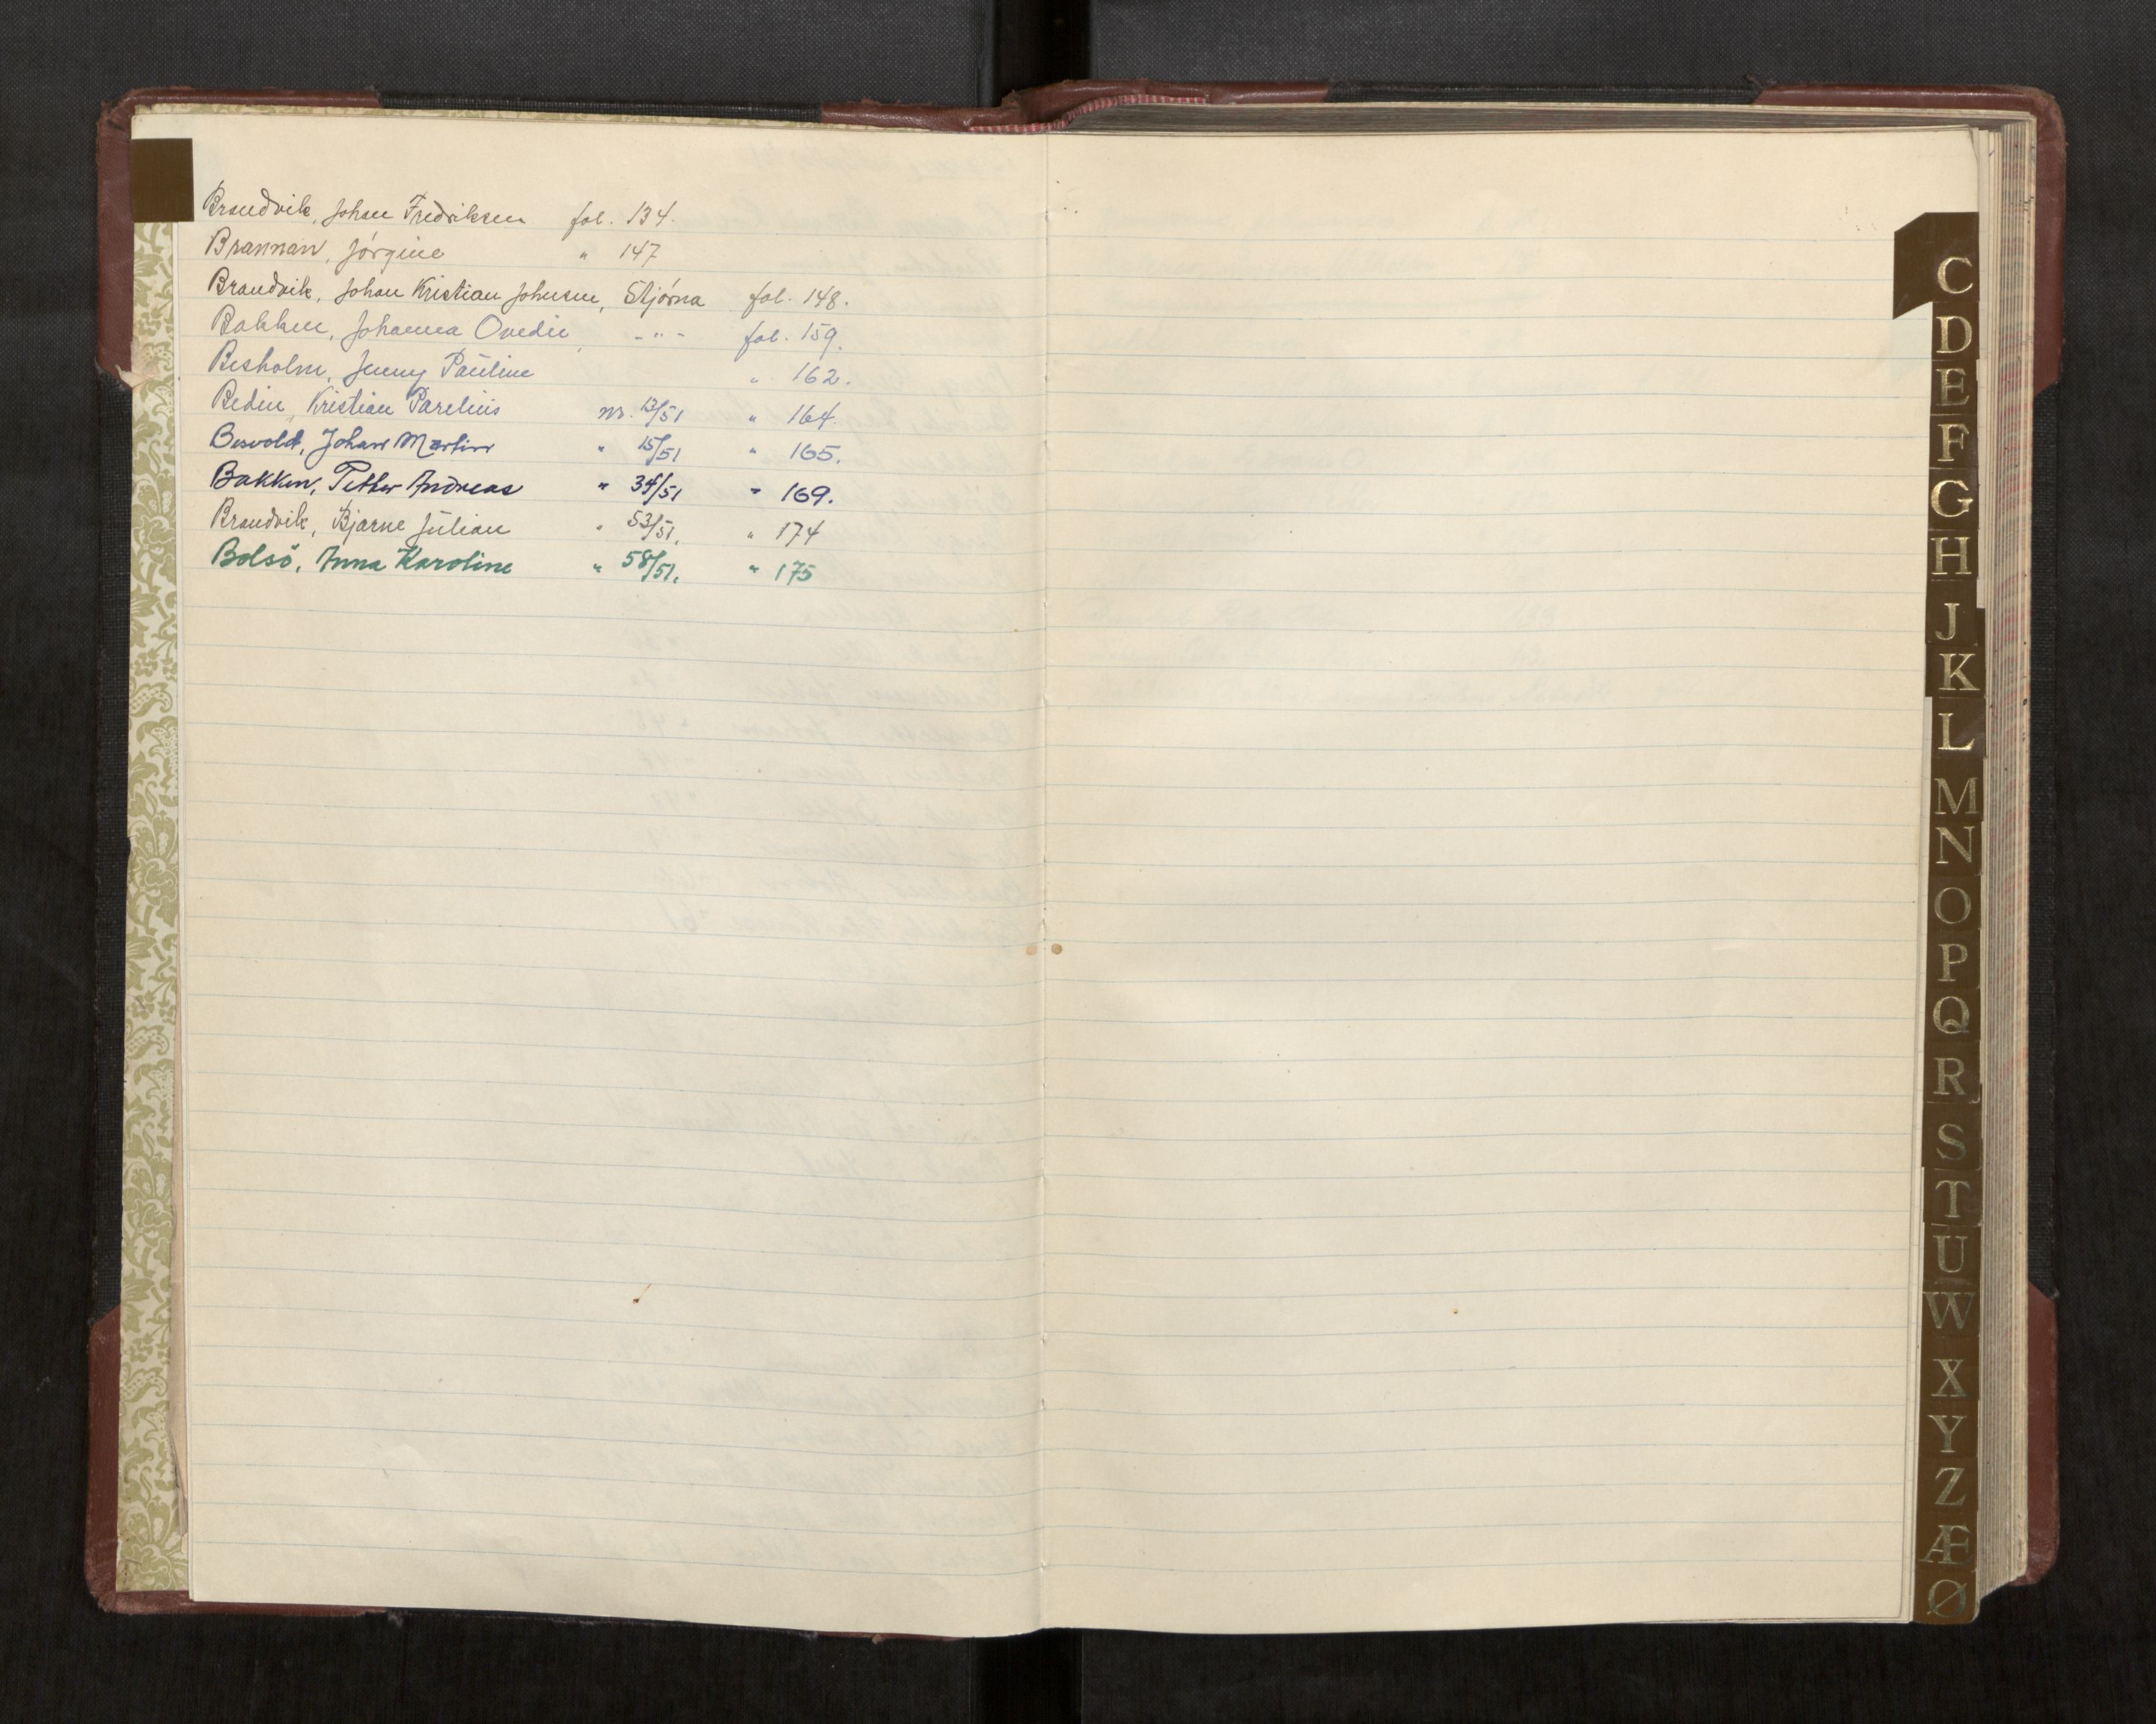 Brandvik, Johan Fredriksen fol. 134.
Brannan, Jørgine " 147
Brandvik, Johan Kristian Johnsen, Stjørna fol. 148.
Bakken, Johanna Ovedie, - " - fol. 159.
Besholm, Jenny Pauline " 162.
Bedin, Kristian Parelius nr. 13/51 " 164.
Besvold, Johan Martin " 15/51 " 165.
Bakken, Petter Andreas " 34/51 " 169.
Brandvik, Bjarne Julian " 53/51. " 174
Bolsö, Anna Karoline " 58/51. " 175
C
D
E
F
G
H
J
K
L
M
N
O
P
Q
R
S
T
U
W
X
Y
Z
Æ
Ø